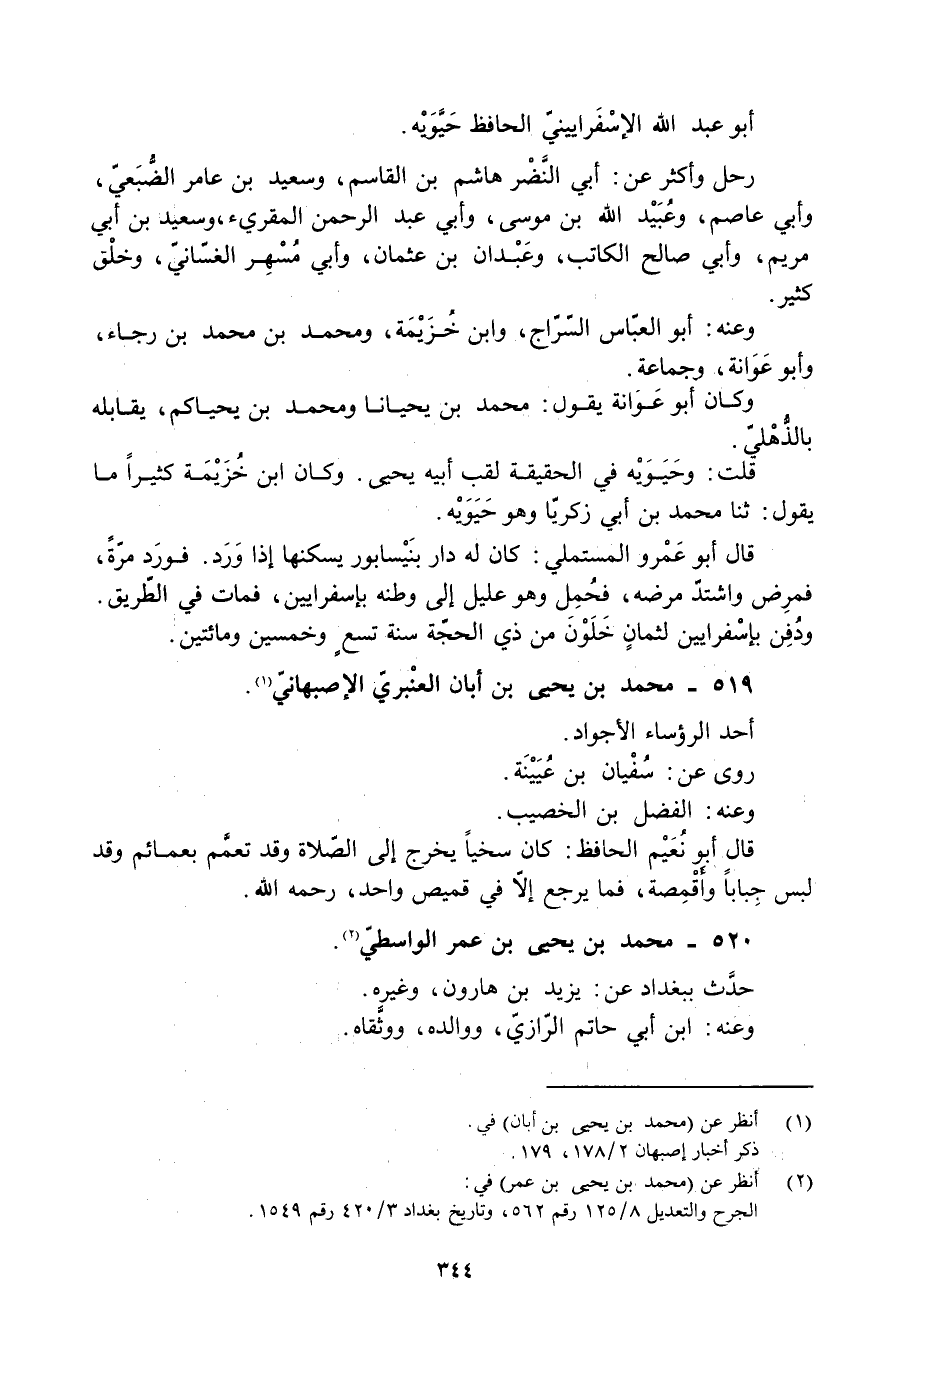 أبو عبد الله الإسْفَرايينيّ الحافظ حَيَّوَيْه.
رحل وأكثر عن: أبي النَّضْر هاشم بن القاسم، وسعيد بن عامر الضُّبَعيّ،
وأبي عاصم، وعُبَيْد الله بن موسى، وأبي عبد الرحمن المقريء،وسعيد بن أبي
مريم، وأبي صالح الكاتب، وعَبْدان بن عثمان، وأبي مُسْهِر الغسّانيّ، وخلْق
كثير.
وعنه: أبو العبّاس السّرّاج، وابن خُزَيْمَة، ومحمد بن محمد بن رجاء،
وأبو عَوَانة، وجماعة.
وكان أبو عَوَانة يقول: محمد بن يحيانا ومحمد بن يحياكم، يقابله
بالذُّهْليّ.
قلت: وحَيَوَيْه في الحقيقة لقب أبيه يحيى. وكان ابن خُزَيْمَة كثيراً ما
يقول: ثنا محمد بن أبي زكريّا وهو حَيَوَيْه.
قال أبو عَمْرو المستملي: كان له دار بنَيْسابور يسكنها إذا وَرَد. فورَد مرّةً،
فمرِض واشتدّ مرضه، فحُمِل وهو عليل إلى وطنه بإسفرايين، فمات في الطّريق.
ودُفِن بإسْفرايين لثمانٍ خَلَوْنَ من ذي الحجّة سنة تسعٍ وخمسين ومائتين.
٥١٩ - محمد بن يحيى بن أبان العنْبريّ الإصبهانيّ(١).
أحد الرؤساء الأجواد.
روى عن: سُفْيان بن عُيَيْنَة.
وعنه: الفضل بن الخصيب.
قال أبو نُعَيْم الحافظ: كان سخياً يخرج إلى الصّلاة وقد تعمَّم بعمائم وقد
لبس جِباباً وأَقْمِصة، فما يرجع إلّا في قميص واحد، رحمه الله.
٥٢٠ - محمد بن يحيى بن عمر الواسطيّ(٢).
حدَّث ببغداد عن: يزيد بن هارون، وغيره.
وعنه: ابن أبي حاتم الرّازيّ، ووالده، ووثَّقاه.
(١) أنظر عن (محمد بن يحيى بن أبان) في.
ذكر أخبار إصبهان ١٧٨/٢، ١٧٩.
(٢) أنظر عن (محمد بن يحيى بن عمر) في:
الجرح والتعديل ١٢٥/٨ رقم ٥٦٢، وتاريخ بغداد ٤٢٠/٣ رقم ١٥٤٩.
٣٤٤